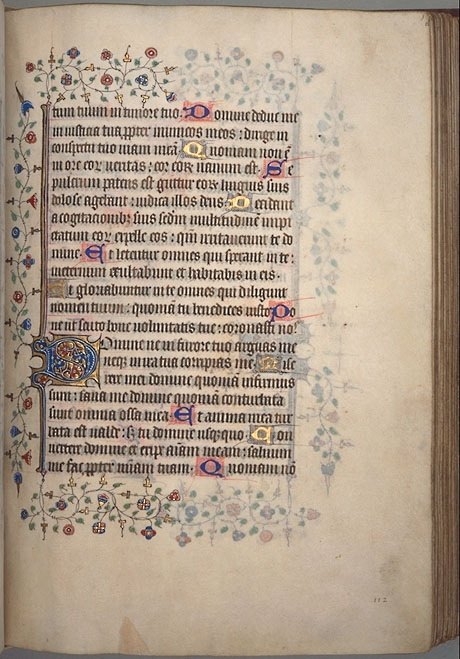 tum tuum in timore tuo: Domine deduc me
in iusticia tua ꝓpter inimicos meos: dirige in
conspectu tuo uiam meā. Quoniam non ē
in ore eoꝝ ueritas: cor eoꝝ uanum est. Se
pulcrum patens est guttur eoꝝ linguis suis
dolose agebant: iudica illos deus. Decidant
a cogitacionibꝫ suis scd̄m multitudinem impi
etatum eoꝝ expelle eos: qm̄ irritauerunt te do
mine. Et letentur omnes qui sperant in te:
in eternum exultabunt et habitabis in eis.
Et gloriabuntur in te omnes qui diligunt
nomen tuum: quoniam tu benedices iusto. Do
ne ut scuto bone voluntatis tue: coronasti no.
Domine ne in furore tuo arguas me
neqꝫ in ira tua corripias me. Mise
rere mei domine quoniā infirmus
sum: sana me domine quoniam conturbata
sunt omnia ossa mea. Et anima mea tur
bata est ualde: sꝫ tu domine usqꝫ quo. Con
uertere domine et eripe aīam meam: saluum
me fac ꝓpter mīam tuam. Quoniam nō
112